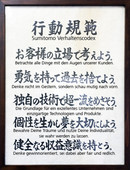 行動規範
Sumitomo Verhaltenscodes
お客様の立場で考えよう。
Betrachte alle Dinge mit den Augen unserer Kunden.
勇気を持って過去を捨てよう。
Denke nicht im Gestern, sondern schau mutig nach vorn
独自の技術で超一流をめざそう。
Die Grundlage für ein exzellentes Unternehmen sind
einzigartige Technologien und Produkte
個性を生かし夢を大切にしよう。
Bewahre Deine Träume und nutze Deine Individualität,
sie wahr werden zu lassen
健全なる収益意識を持とう。
Denke gewinnorientiert, sei dabei aber fair und redlich.